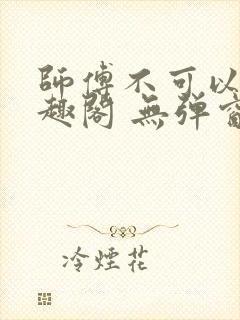 師傅不可以
趣閣 無彈窗
冷煙花